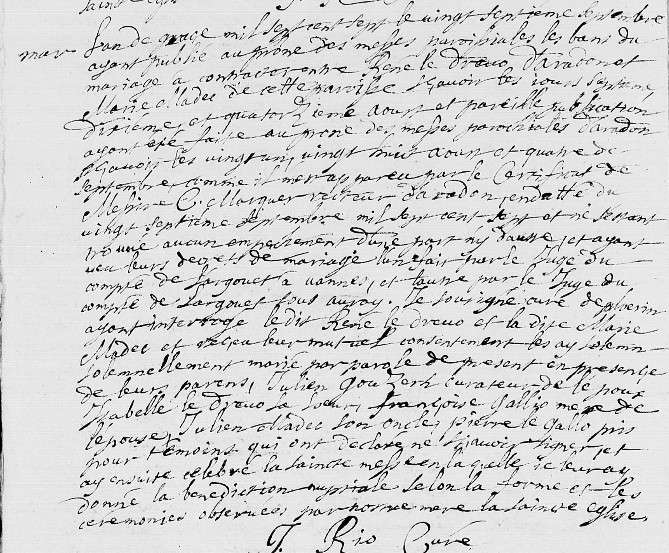 L'an de grace mil sept cent sept le vingt septieme septembre
mar ayant publié au prône des messes paroissiales les bans du
mariage a contracter entre René le Drevo d'aradon et
Marie Madec de cette paroisse sçavoir les jours septieme
dixiéme et quatorzieme aoust et pareille publication
ayant eté faite au prone des messes paroissiales d'aradon
sçavoir les vingt un, vingt huit aoust et quatre de
septembre, comme il m'est apparu par le Certificat de
Messire C. Morquer recteur d'aradon, en datte du
vingt septieme septembre mil sept cent sept et ne s'estant
trouvé aucun empechement d'une part ny d'autre, et ayant
veu leurs decrets de mariage l'un fait par le Juge du
compté de Largouet a vannes, et l'autre par le Juge du
compté de Largouet sous auray. Je soussigné curé de ploeren
ayant interrogé ledit René le Drevo et la dite Marie
Madec et reçeu leur mutuel consentement les ay solemn
solemnellement marié par parole de present en presençe
de leurs parens, Julien Gouzerh curateur de l'epoux
Isabelle le Drevo sa soeur, françoise Gallio mere de
l'epouse, Julien Madec son oncle, pierre le Gallo pris
pour temoins qui ont declaré ne sçavoir signer, et
ay ensuite celebré la saincte messe en laquelle je leur ay
donné la benediction nuptiale selon la forme et les
ceremonies observées par notre mere la Saincte Eglise.
J. Rio Curé